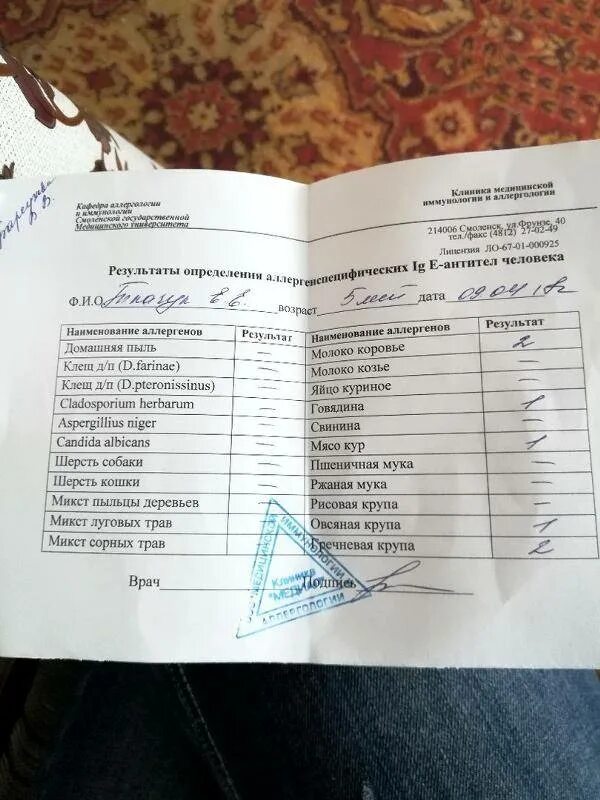 Кафедра аллергологии
и иммунологии
Смоленской государственной
Медицинского университета
Клиника медицинской
иммунологии и аллергологии
214006 Смоленск, ул.Фрунзе, 40
тел./факс (4812) 27-02-49
Лицензия ЛО-67-01-000925
Результаты определения аллергенспецифических Ig E-антител человека
Ф.И.О. Ткачук Е.Е. возраст 5 лет дата 09.04.18г
Наименование аллергенов Результат
Домашняя пыль —
Клещ д/п (D.farinae) —
Клещ д/п (D.pteronissinus) —
Cladosporium herbarum —
Aspergillius niger —
Candida albicans —
Шерсть собаки —
Шерсть кошки —
Микст пыльцы деревьев —
Микст луговых трав
Микст сорных трав
Наименование аллергенов Результат
Молоко коровье 2
Молоко козье —
Яйцо куриное —
Говядина 1
Свинина —
Мясо кур 1
Пшеничная мука —
Ржаная мука —
Рисовая крупа —
Овсяная крупа 1
Гречневая крупа 2
Врач Подпись
ООО "МЕДИЦИНСКОЙ
ИММУНОЛОГИИ
АЛЛЕРГОЛОГИИ
Клиника